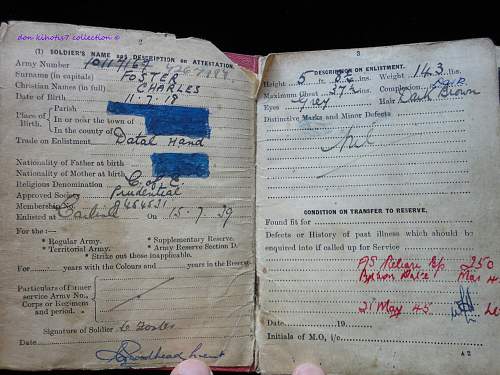 don kihotis7 collection ©
2
(1) SOLDIER'S NAME AND DESCRIPTION on ATTESTATION.
Army Number
Surname (in capitals) FOSTER
Christian Names (in full) CHARLES
Date of Birth 11.7.18
Place of Birth. Parish
In or near the town of
In the county of
Trade on Enlistment Datal Hand
Nationality of Father at birth
Nationality of Mother at birth
Religious Denomination C of E.
Approved Society Prudential
Membership
Enlisted at On 15.7.39
For the :—
* Regular Army. * Supplementary Reserve.
* Territorial Army. * Army Reserve Section D.
* Strike out those inapplicable.
For years with the Colours and years in the Reserve.
Particulars of former service Army No. Corps or Regiment and period.
Signature of Soldier C Foster
Date
3
DESCRIPTION ON ENLISTMENT.
Height 5 ft. ins. Weight 143 lbs.
Maximum Chest 37½ ins. Complexion
Eyes Grey Hair Dark Brown
Distinctive Marks and Minor Defects
Nil
CONDITION ON TRANSFER TO RESERVE.
Found fit for
Defects or History of past illness which should be
enquired into if called up for Service
250
21 May 45
Date 19
Initials of M.O. i/c.
A 2